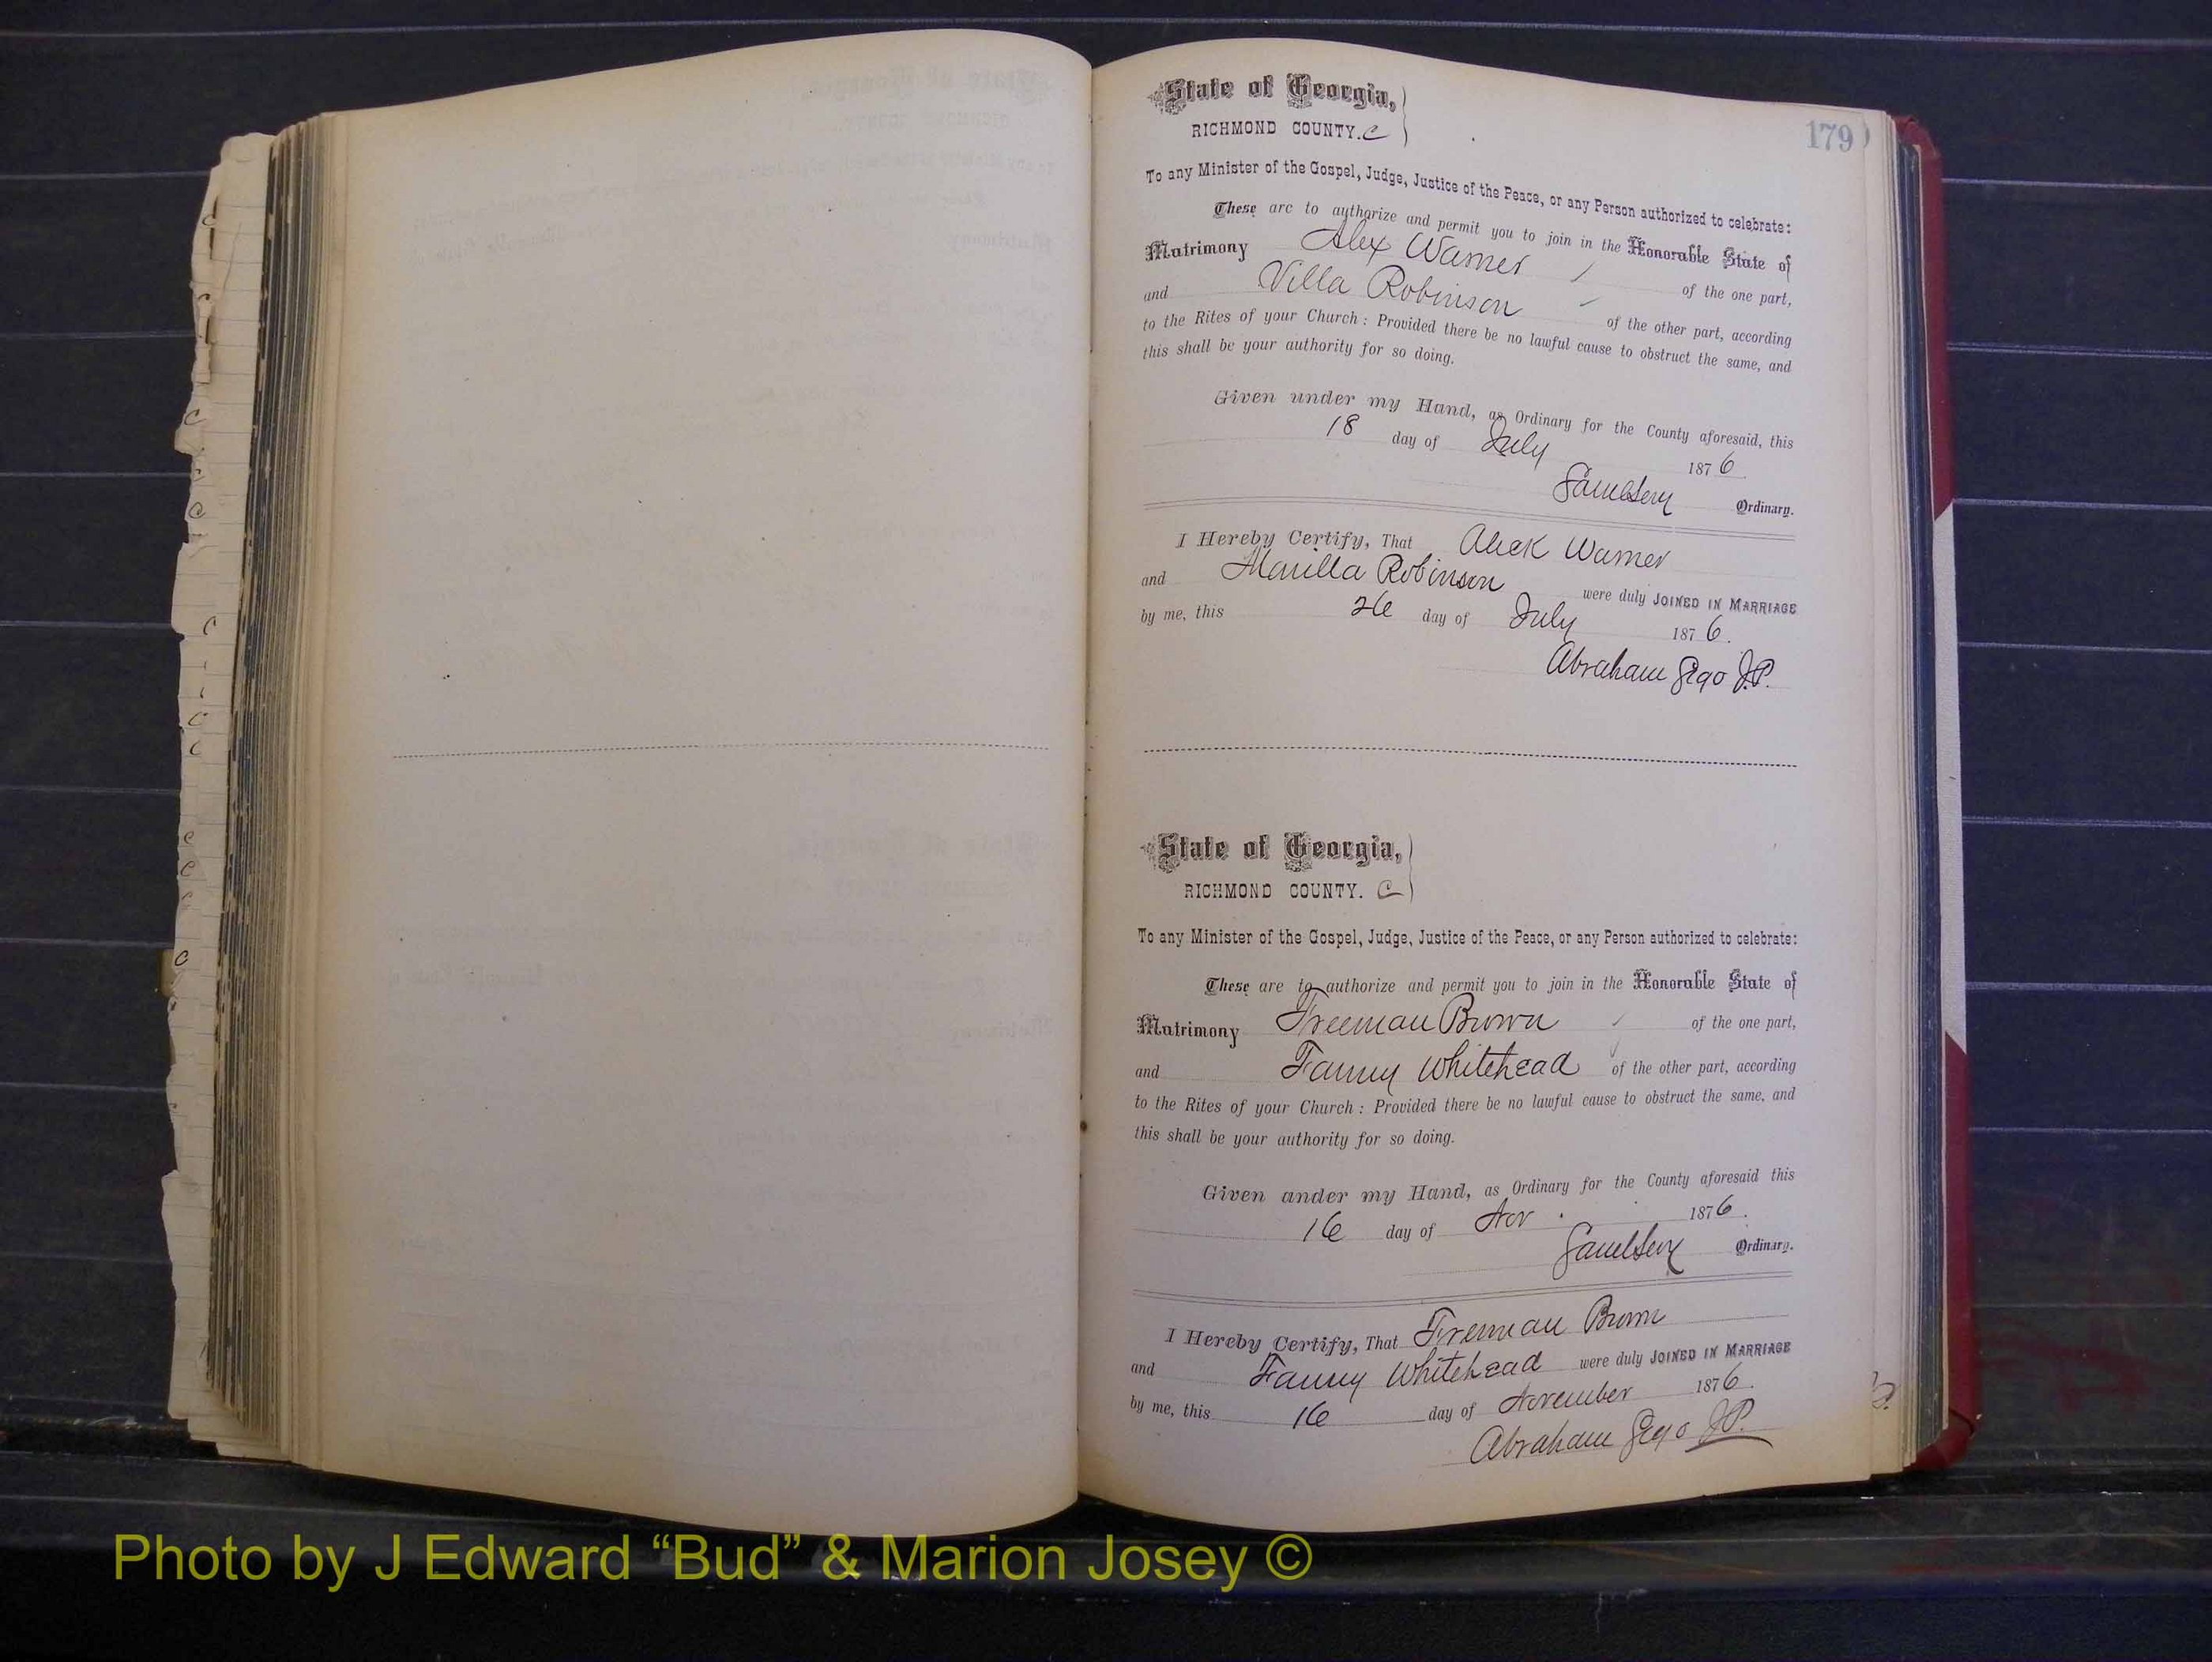 179
State of Georgia,
RICHMOND COUNTY. C
To any Minister of the Gospel, Judge, Justice of the Peace, or any Person authorized to celebrate:
These are to authorize and permit you to join in the Honorable State of
Matrimony Alex Warner of the one part,
and Villa Robinson of the other part, according
to the Rites of your Church: Provided there be no lawful cause to obstruct the same, and
this shall be your authority for so doing.
Given under my Hand, as Ordinary for the County aforesaid, this
18 day of July 1876
Saml Levy Ordinary.
I Hereby Certify, That Aleck Warner
and Marilla Robinson were duly JOINED IN MARRIAGE
by me, this 26 day of July 1876.
Abraham J.P.
State of Georgia,
RICHMOND COUNTY. C
To any Minister of the Gospel, Judge, Justice of the Peace, or any Person authorized to celebrate:
These are to authorize and permit you to join in the Honorable State of
Matrimony Freeman Brown of the one part,
and Fanny Whitehead of the other part, according
to the Rites of your Church: Provided there be no lawful cause to obstruct the same, and
this shall be your authority for so doing.
Given under my Hand, as Ordinary for the County aforesaid this
16 day of Nov 1876.
Saml Levy Ordinary.
I Hereby Certify, That Freeman Brown
and Fanny Whitehead were duly JOINED IN MARRIAGE
by me, this 16 day of November 1876.
Abraham J.P.
Photo by J Edward “Bud” & Marion Josey ©